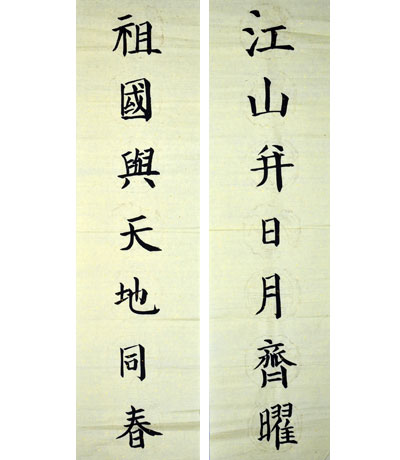 江山并日月齊曜
祖國與天地同春